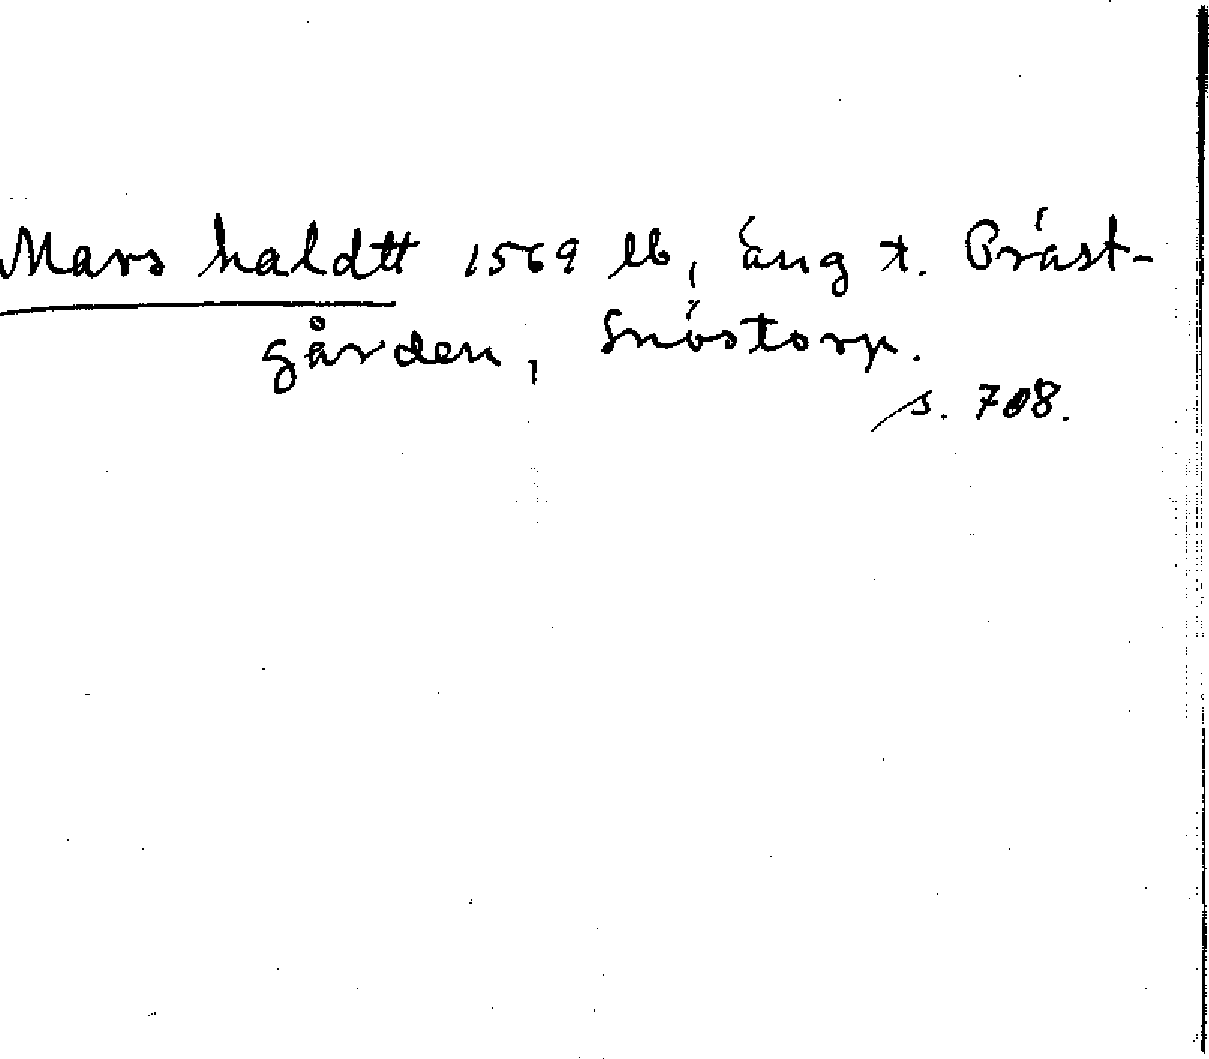 Mars haldtt 1569 lb, äng t. Präst-
gården, Snöstorp.
s. 708.